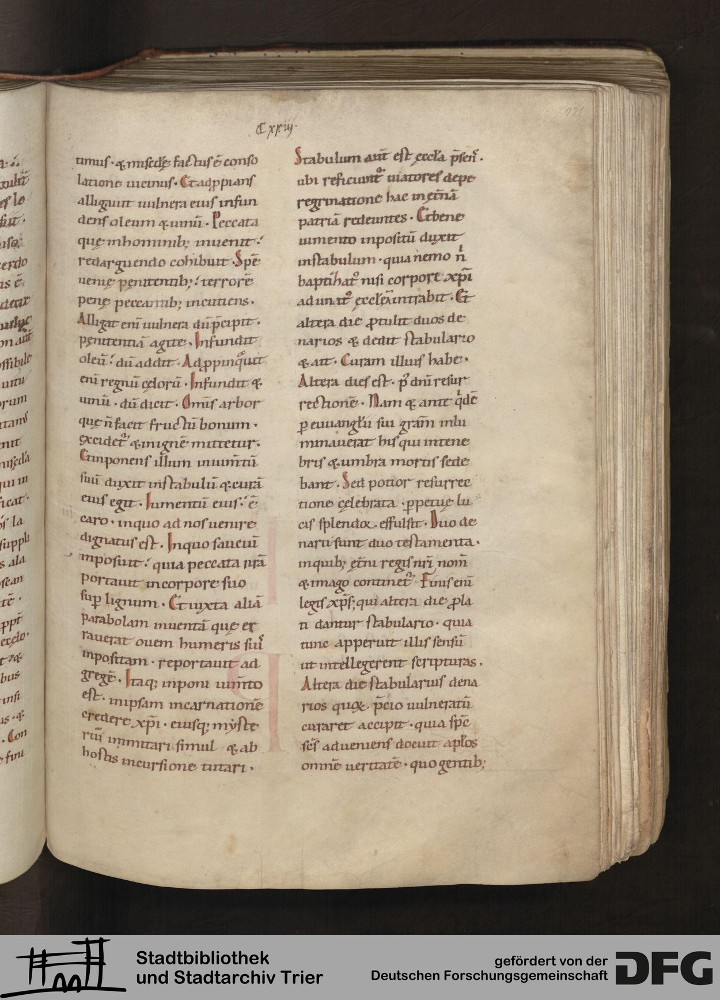 CXXIIJ.
timus · & misedię factus ē conso
latione uicinus · Et adppians
alligauit uulnera eius infun
dens oleum & uinū · Peccata
que in hominib; inuenit ·
redarguendo cohibuit · Spē
uenię penitentib; terrorē
penę peccantib; incutiens ·
Alligat enī uulnera dū p̄cipit ·
penitentiā agite · Infundit
oleū · dū addit · Adppinquit
enī regnū cęlorū · Infundit &
uinū · dū dicit · Omīs arbor
que n̄ facit fructū bonum ·
excidet᷑ & in ignē mittetur ·
Et inponens illum in iumtū
suū duxit in stabulū & curā
eius egit · Iumentū eius · ē
caro · in quo ad nos uenire
dignatus est · In quo sauciū
inposuit · quia peccata nr̄a
portauit in corpore suo
sup lignum · Et iuxta aliā
parabolam inuentā que er
rauerat ouem humeris suis
inpositam · reportauit ad
gregē · Itaq; inponi iumto
est · in ipsam incarnationē
credere xp̄i · eiusq; mẏste
riū inimitari simul & ab
hostis incursione tutari ·
Stabulum aut̄ est eccła p̄sen̄ ·
ubi reficiunt᷑ uiatores de pe
regrinatione hac in et̄nā
patriā redeuntes · Et bene
iumento inpositū duxit
in stabulum · quia nemo n̄
baptihat᷑ nisi corpore xp̄i
adunat᷑ ecclēā intrabit · Et
altera die ptulit duos de
narios & dedit stabulario
& ait · Curam illius habe ·
Altera dies est · p̄ dn̄i resur
rectionē · Nam & ante q̇dē
p euuangłii sui gr̄am inlu
minauerat his qui in tene
bris & umbra mortis sede
bant · Sed potior resurrec
tione celebrata · ppetuę lu
cis splendor effulsit · Duo de
narii sunt duo testamenta ·
in quib; et̄ni regis nr̄i nom̄
& imago continet᷑ · Finis enī
legis xp̄s; qui altera die pla
ti dantur stabulario · quia
tunc apperuit illis sensū
ut intellegerent scripturas ·
Altera die stabularius dena
rios quoꝝ p̄cio uulneratū
curaret accipit · quia sp̄c
sc̄s adueniens docuit apłos
omnē ueritatē · quo gentib;
Stadtbibliothek
und Stadtarchiv Trier
gefördert von der
Deutschen Forschungsgemeinschaft
DFG